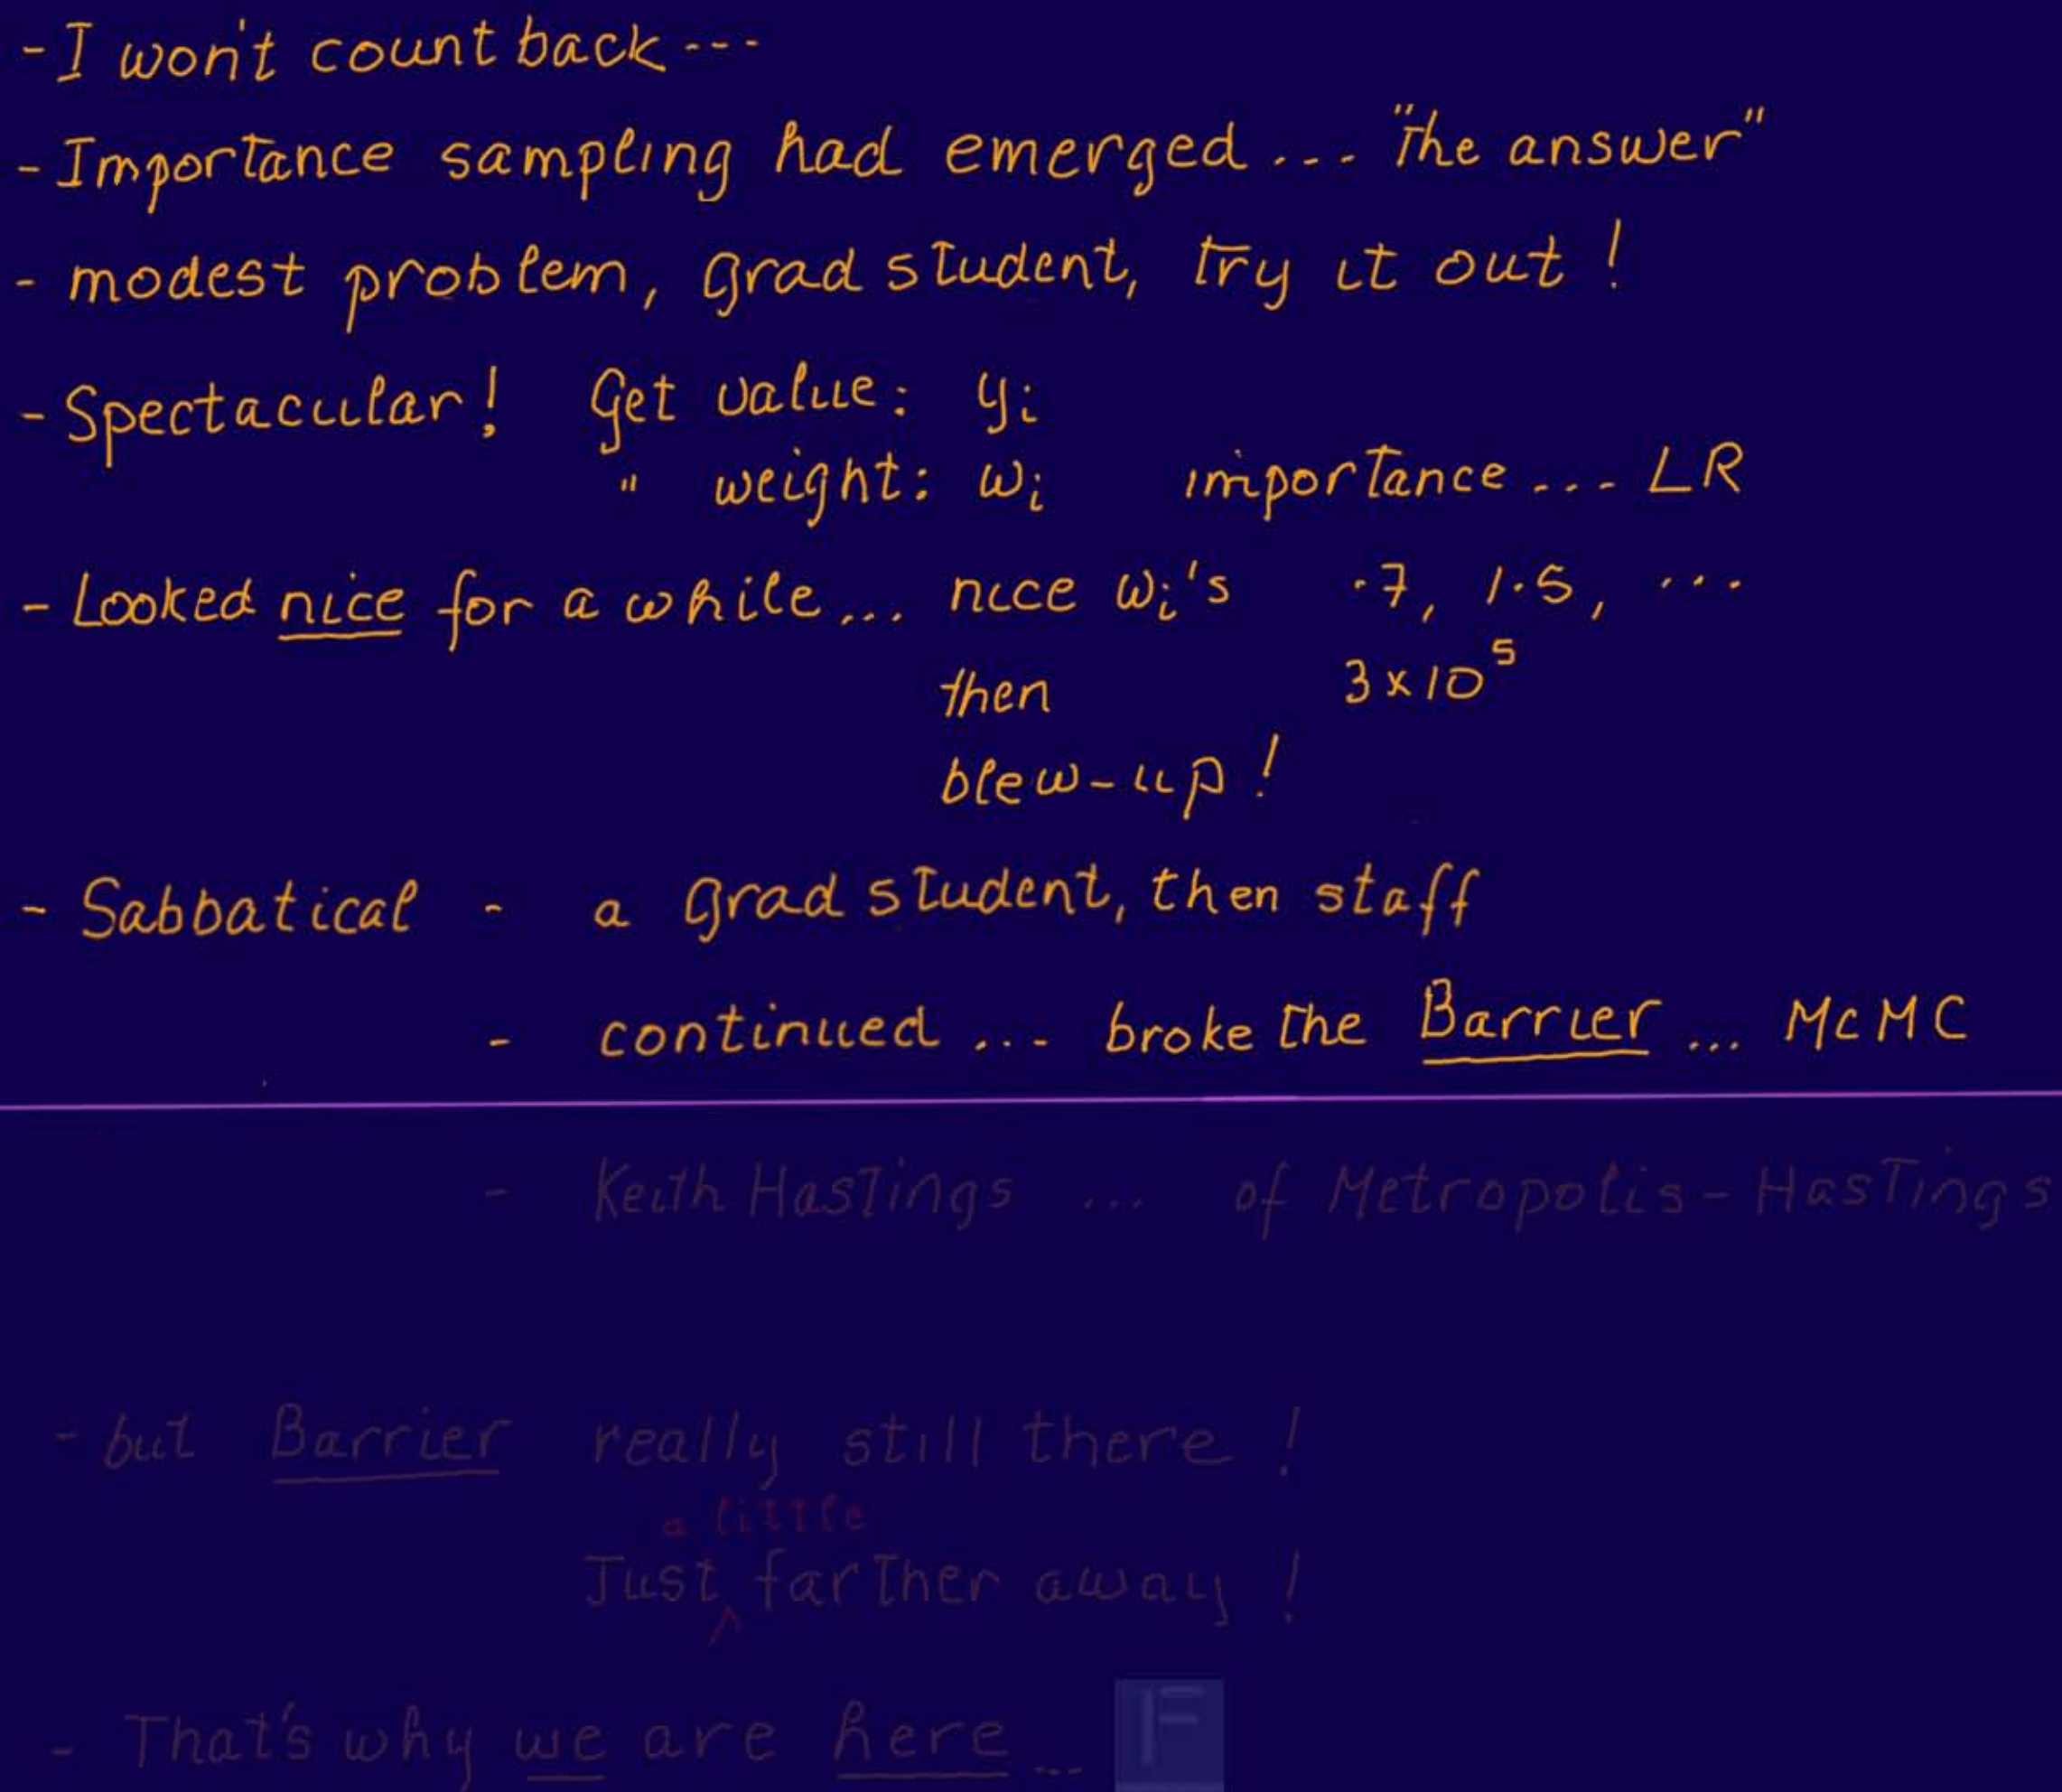 - I won't count back ---
- Importance sampling had emerged ... "The answer"
- modest problem, grad student, try it out !
- Spectacular! Get value: yᵢ
" weight: wᵢ importance ... LR
- Looked nice for a while ... nice wᵢ's .7, 1.5, ...
then 3 x 10⁵
blew-up !
- Sabbatical - a grad student, then staff
- continued ... broke the Barrier ... McMC
- Keith Hastings ... of Metropolis - Hastings
- but Barrier really still there !
a little
Just ^ farther away !
- That's why we are here ... F